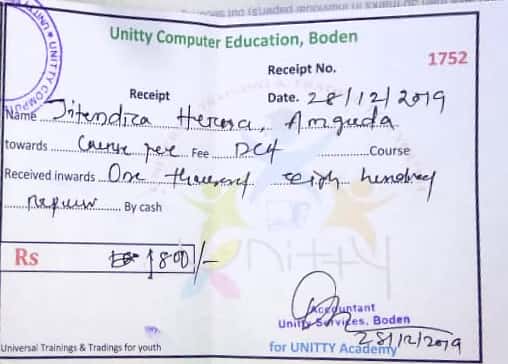 Unitty Computer Education, Boden
Receipt No. 1752
Receipt Date. 28/12/2019
Name Jitendra Herera, Amguda
towards Course fee Fee DCA Course
Received inwards One thousand eight hundred
By cash
Rs 1800/-
Accountant
Unitty Services, Boden
28/12/2019
Universal Trainings & Tradings for youth
for UNITTY Academy